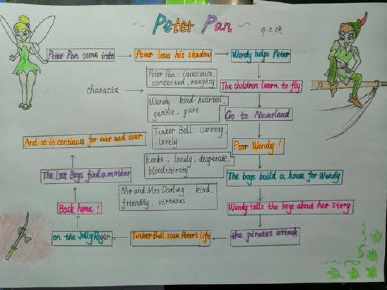 ~ Peter Pan ~
Peter Pan came into
Peter loses his shadow
Wendy helps Peter
The children learn to fly
Go to Neverland
Poor Wendy !
The boys build a house for Wendy
Wendy tells the boys about her story
the pirates attack
Tinker Bell saves Peter's life
on the Jolly Roger
Back home !
The Lost Boys find a mother
And so it continues for ever and ever
character
Peter Pan : conscious
conceited , naughty
Wendy kind-hearted
gentle , pure
Tinker Bell cunning
lovely
Hook , lonely , desperate
bloodthirsty
Mr and Mrs Darling kind
friendly virtuous